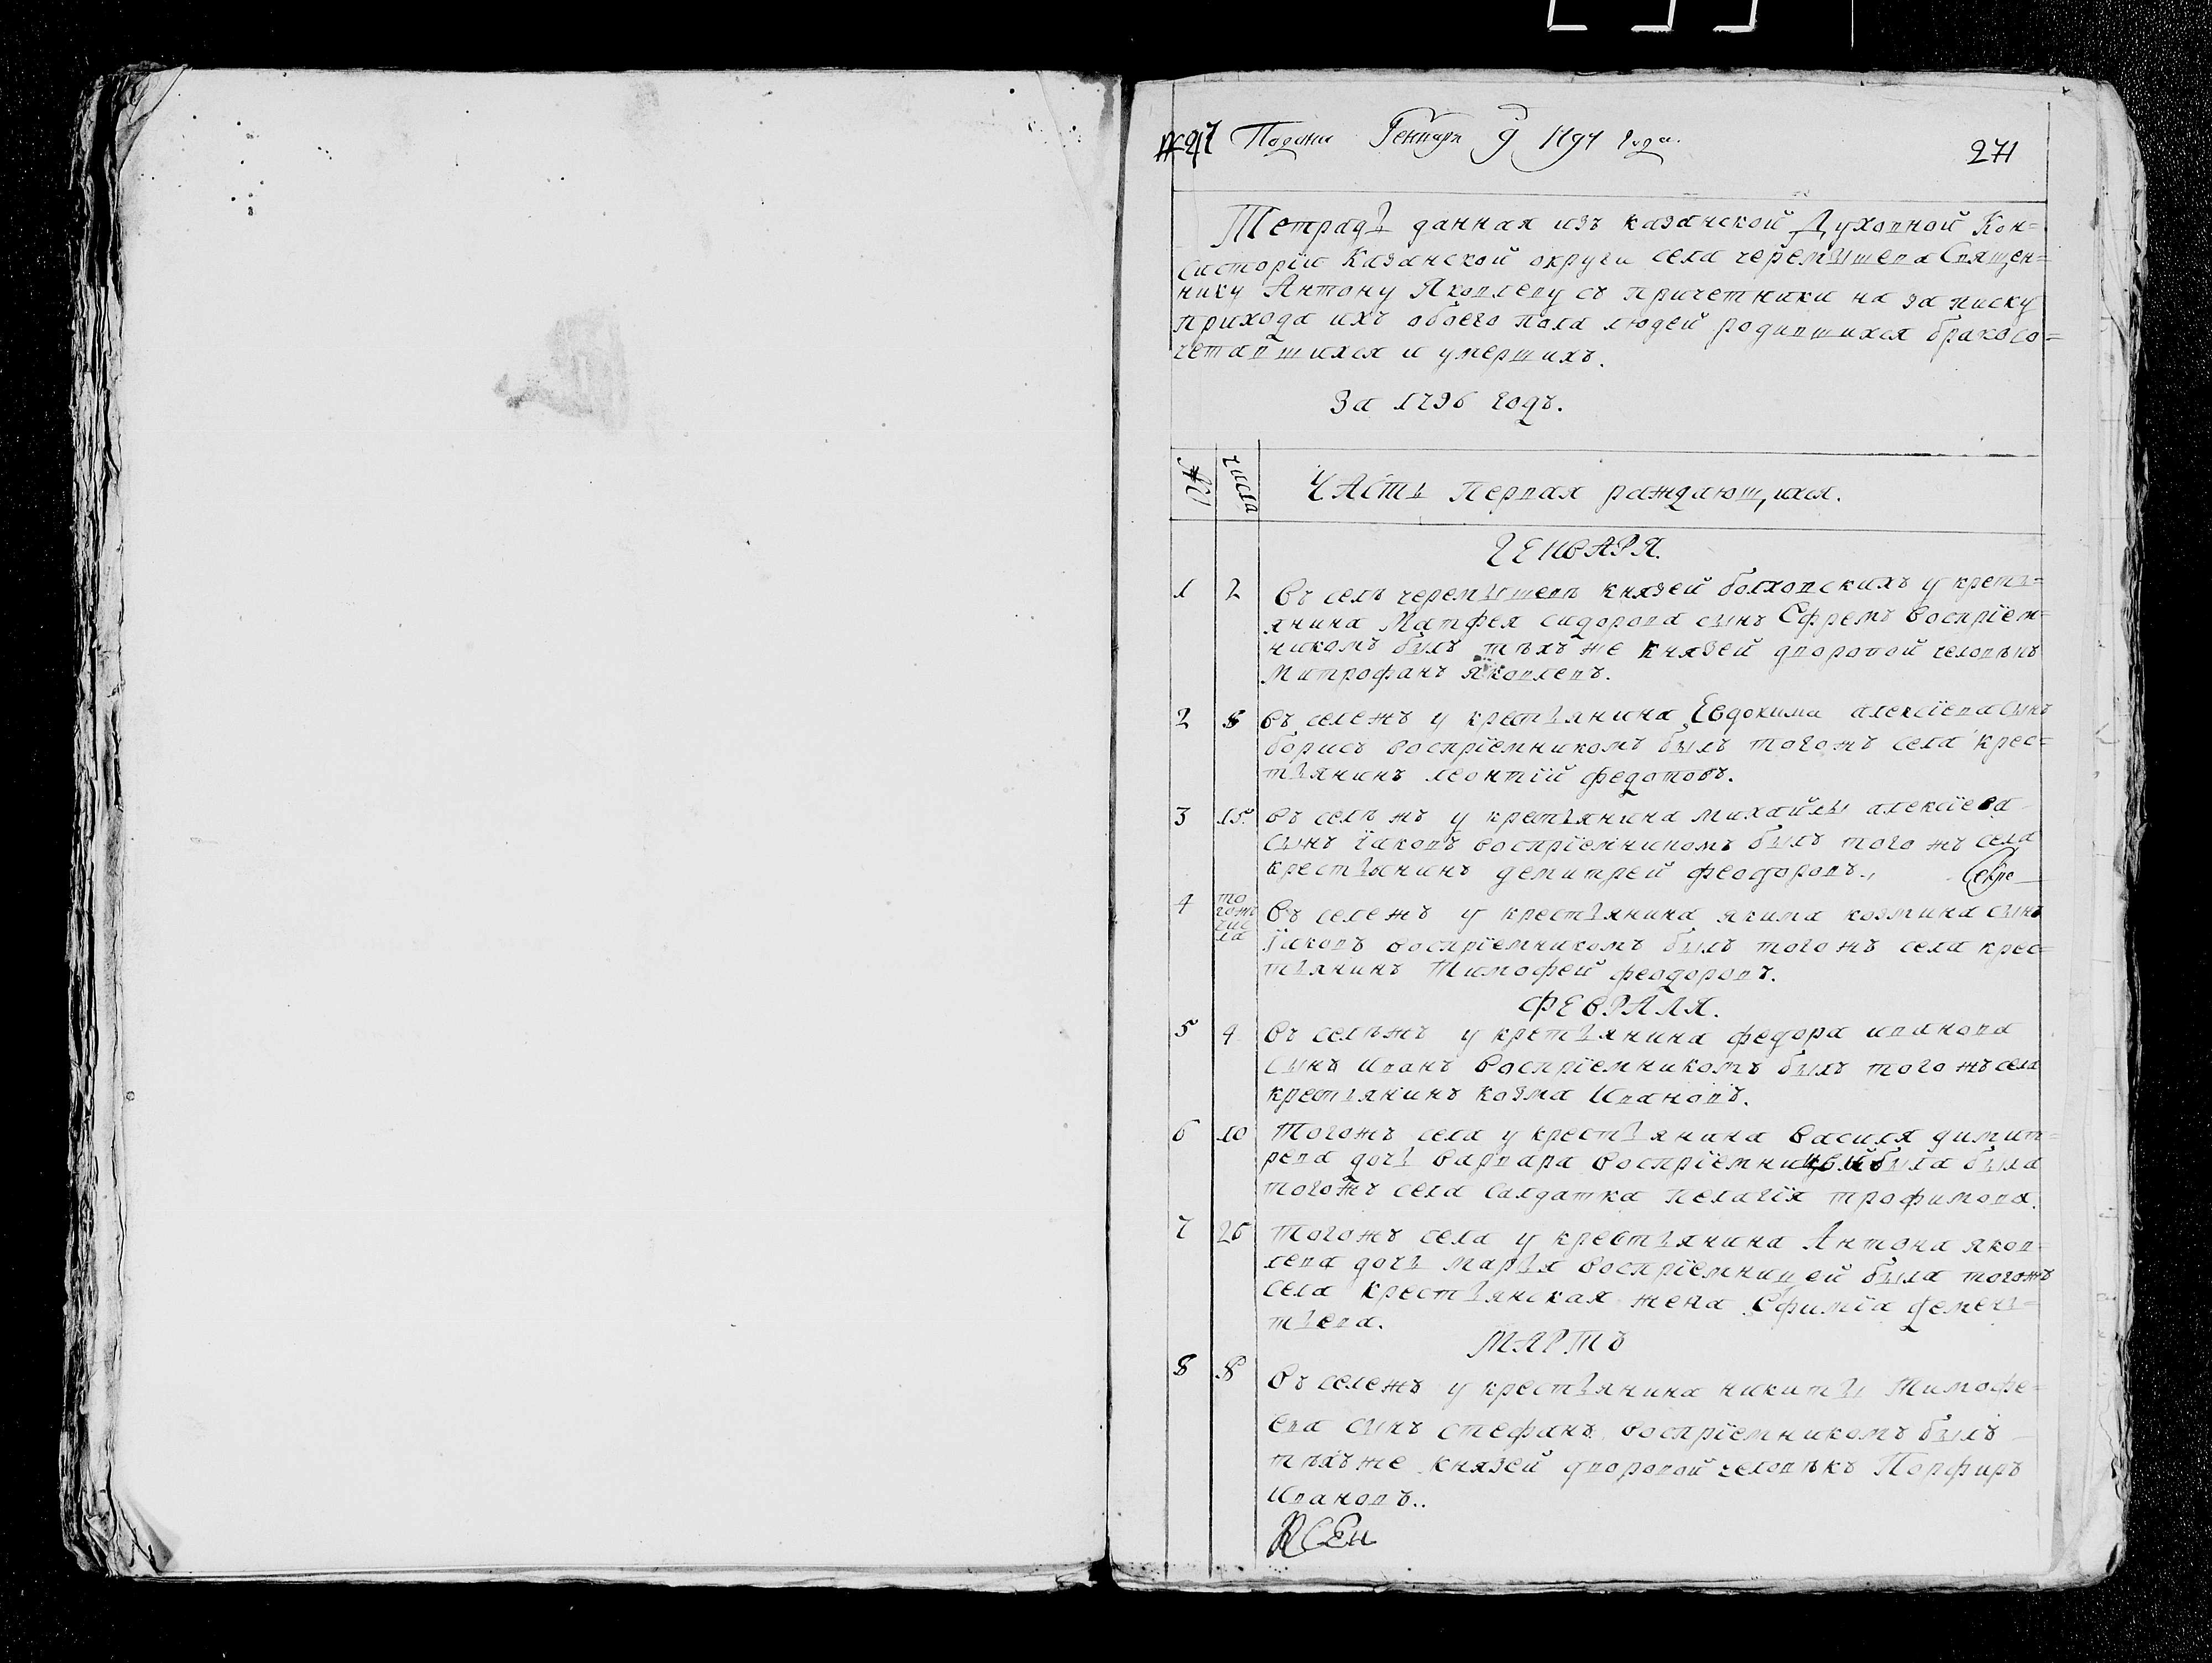 Подана Генваря 9 1797 года.
271
Тетрадь данная изъ казанской Духовной Кон=
систоріи Казанской округи села черемышева Священ=
нику Антону Яковлеву съ причетники на записку
прихода ихъ обоего пола людей родившихся бракосо=
четавшихся и умершихъ.
За 1796 годъ.
№ числа Часть первая раждающихся.
ГЕНВАРЯ.
1 2 Въ селѣ черемышевѣ князей болховскихъ у кресть=
янина Матфея сидорова сынъ Ефремъ воспріем=
никомъ былъ тѣхъ же князей дворовой человѣкъ
Митрофанъ яковлевъ.
2 8 въ сележъ у крестьянина Евдокима алексіева сынъ
борисъ воспріемникомъ былъ тогожъ села крес=
тьянинъ леонтій федотовъ.
3 15. въ селѣ жъ у крестьянина михайлы алексіева
сынъ іаковъ воспріемникомъ былъ того жъ села
крестьянинъ демитрей феодоровъ. Секре
4 тогожъ числа Въ сележъ у крестьянина якима козмина сынъ
іаковъ воспріемникомъ былъ тогожъ села крес=
тьянинъ Тимофей феодоровъ.
ФЕВРАЛЯ.
5 4 Въ селѣжъ у крестьянина федора иванова
сынъ иванъ воспріемникомъ былъ того жъ села
крестьянинъ козма Ивановъ.
6 10 Тогожъ села у крестьянина василя димит=
рева дочь варвара воспріемницей была была
тогожъ села салдатка пелагія трофимова.
7 26 Тогожъ села у крестьянина Антона яков=
лева дочь марья воспріемницей была тогожъ
села крестьянская жена Ефимія
тьева.
МАРТЪ
8 8 Въ сележъ у крестьянина никиты Тимофе=
ева сынъ стефанъ воспріемникомъ былъ
тѣхъ же князей дворовой человѣкъ Порфиръ
Ивановъ..